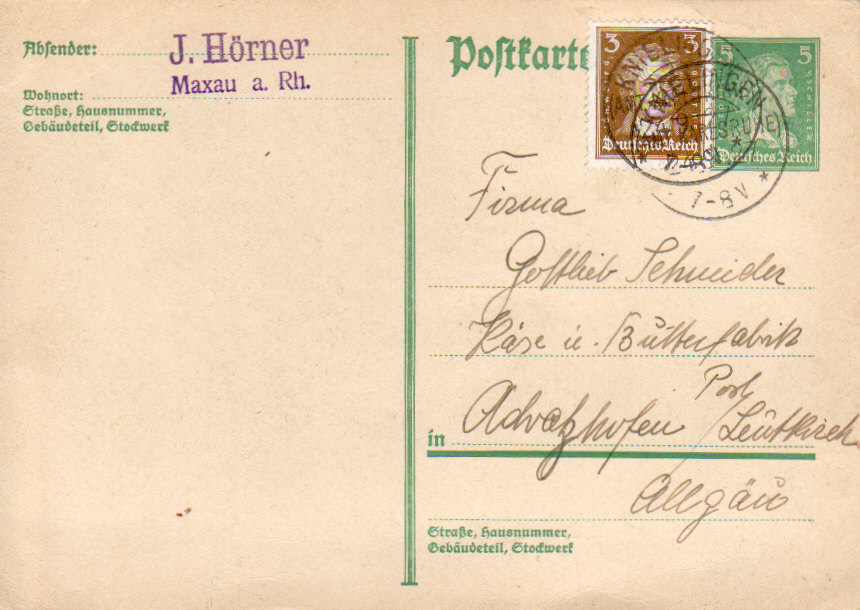 Absender: J. Hörner
Maxau a. Rh.
Wohnort:
Straße, Hausnummer,
Gebäudeteil, Stockwerk
Postkarte
3 3
Deutsches Reich
5
V. SCHILLER
Deutsches Reich
KNIELINGEN
7-8V
Firma
Gottlieb Schneider
Käse u. Butterfabrik
Post
in Adratzhofen / Leutkirch
Allgäu
Straße, Hausnummer,
Gebäudeteil, Stockwerk